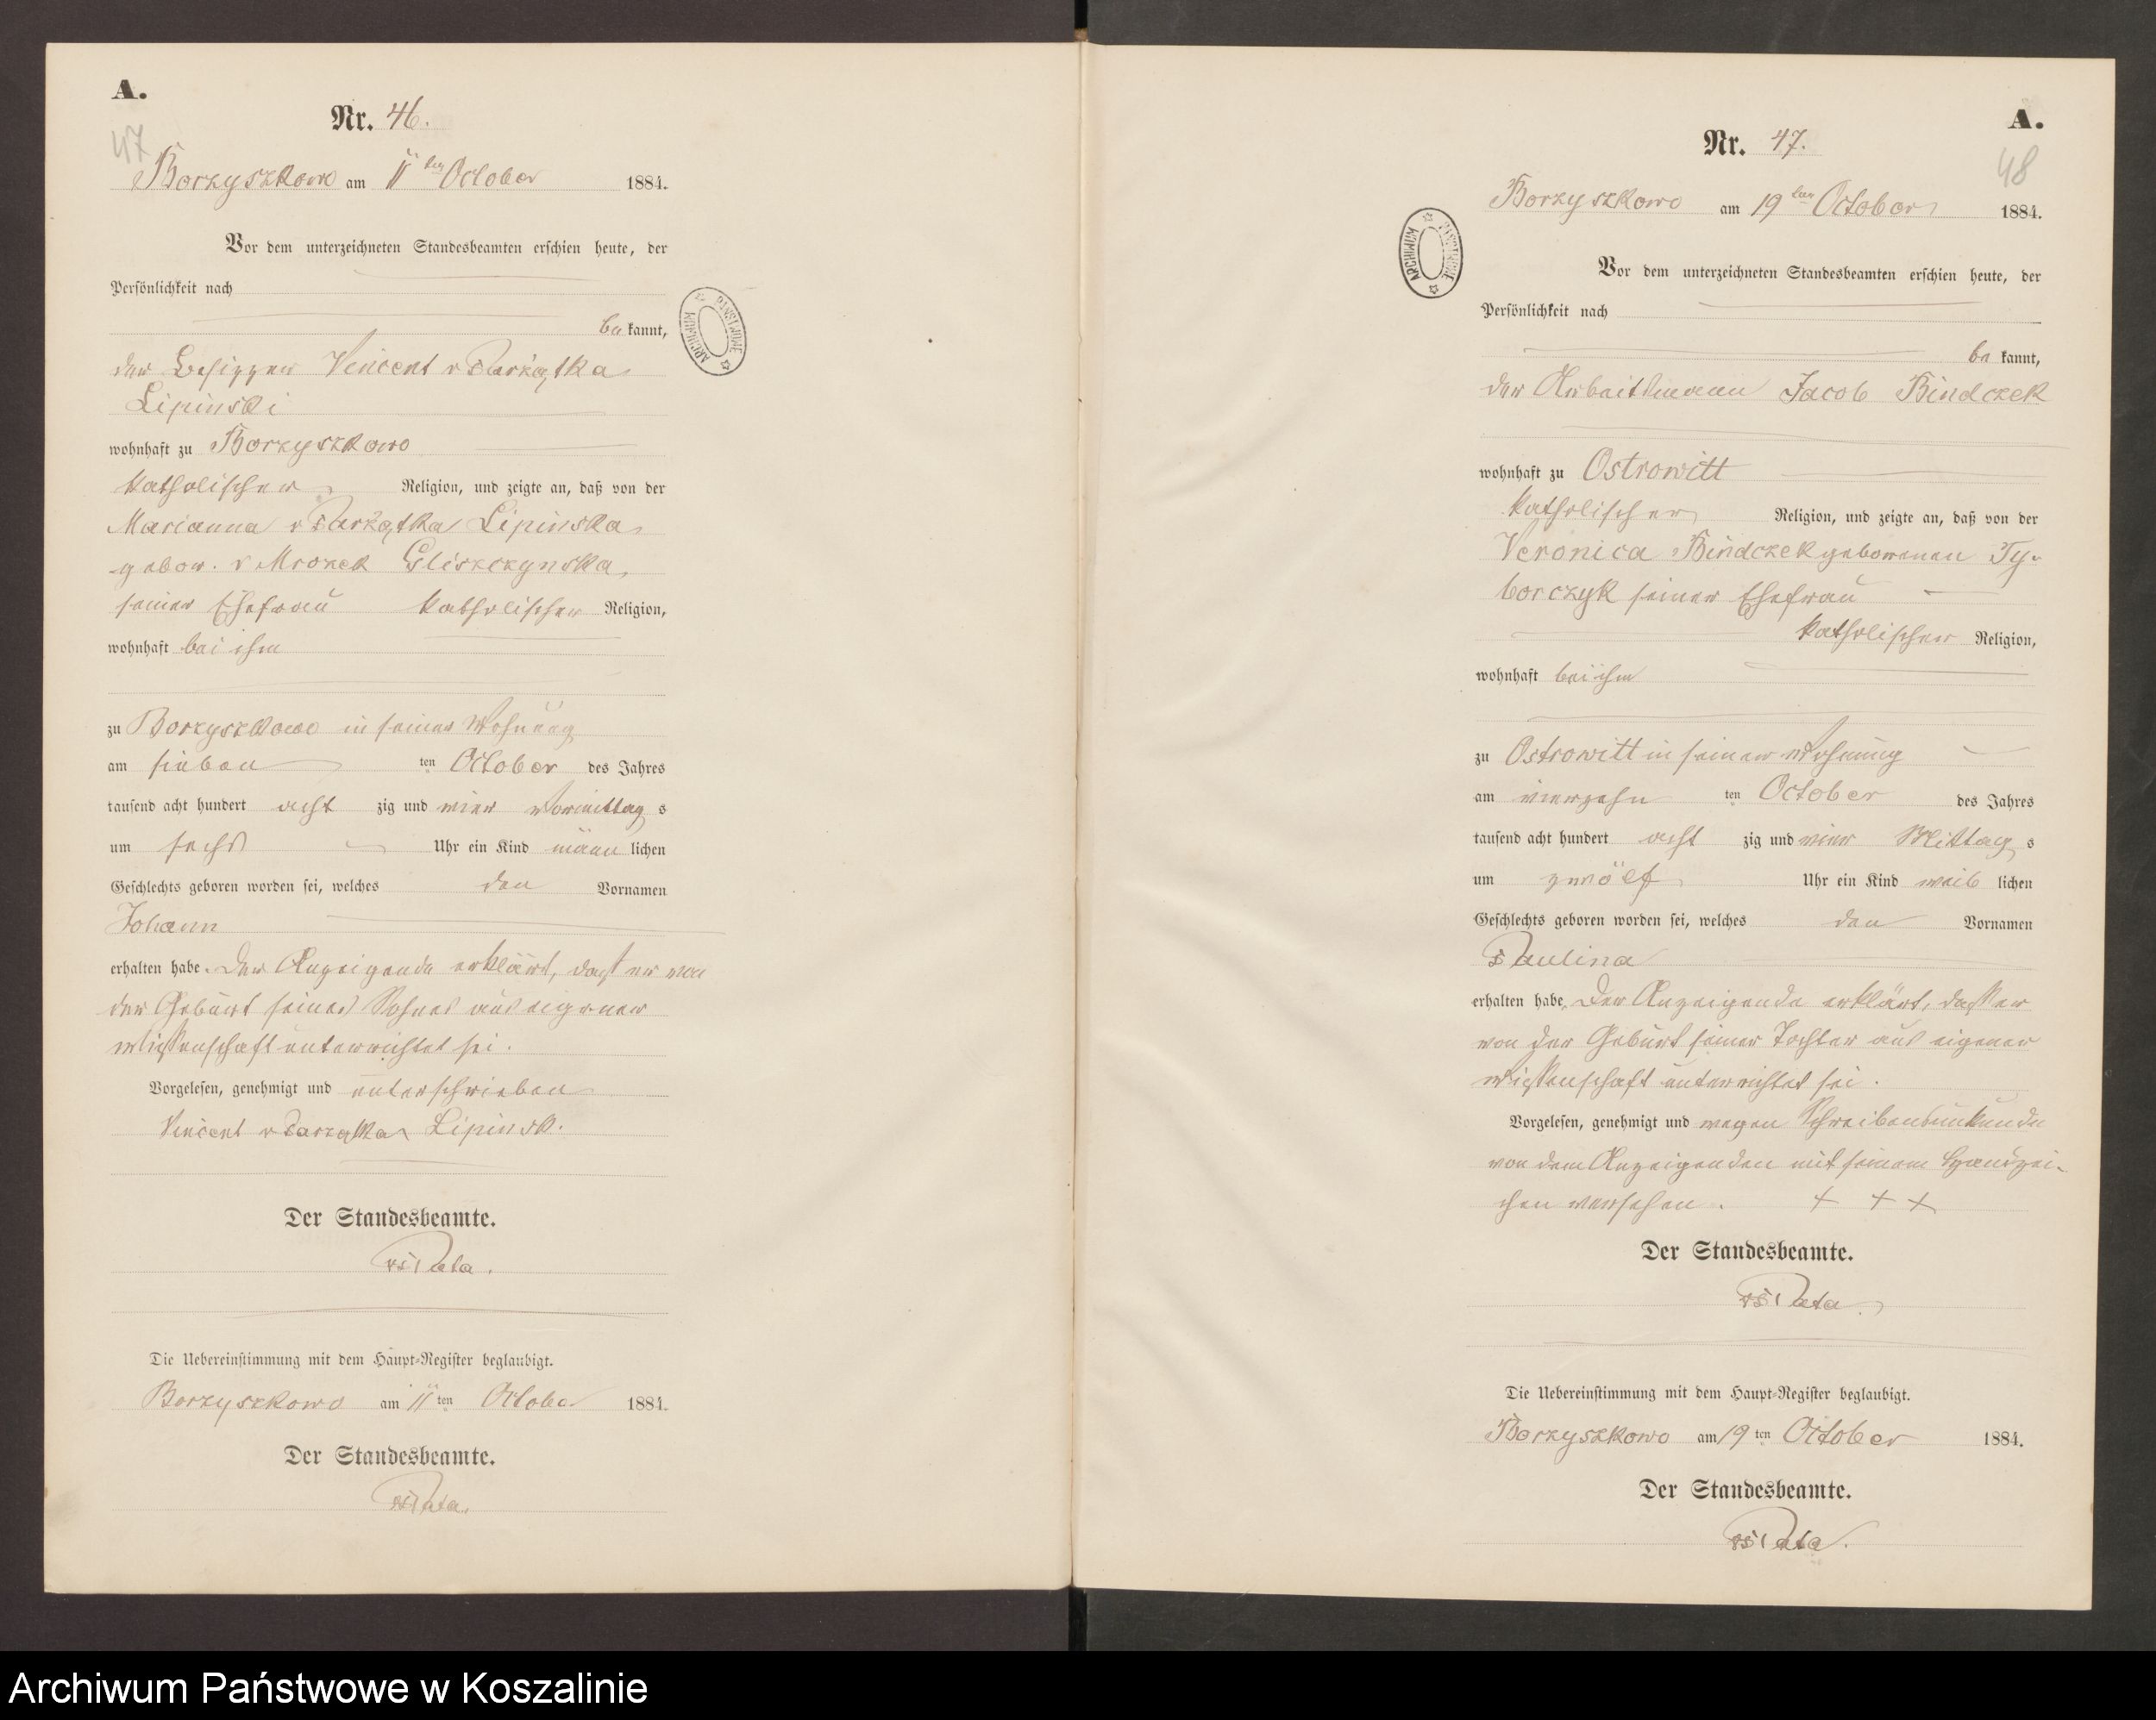 A.
47
Nr. 46.
Borzyszkowo am 11ten October 1884.
Vor dem unterzeichneten Standesbeamten erschien heute, der
Persönlichkeit nach
be kannt,
der Besitzer Vincent v Parzątka
Lipinski
wohnhaft zu Borzyszkowo
katholischer Religion, und zeigte an, daß von der
Marianna v Parzątka Lipinska
gebor. v Mrozek Gliszczynska,
seiner Ehefrau katholischer Religion,
wohnhaft bei ihm
zu Borzyszkowo in seiner Wohnung
am sieben ten October des Jahres
tausend acht hundert acht zig und vier Vormittag s
um sechs Uhr ein Kind männ lichen
Geschlechts geboren worden sei, welches den Vornamen
Johann
erhalten habe. Der Anzeigende erklärt, dass er von
der Geburt seines Sohnes aus eigener
Wissenschaft unterrichtet sei.
Vorgelesen, genehmigt und unterschrieben
Vincent v Parzątka Lipinsk.
Der Standesbeamte.
Pata.
Die Uebereinstimmung mit dem Haupt-Register beglaubigt.
Borzyszkowo am 11 ten October 1884.
Der Standesbeamte.
Pata.
ARCHIWUM PAŃSTWOWE
A.
48
Nr. 47.
Borzyszkowo am 19ten October 1884.
Vor dem unterzeichneten Standesbeamten erschien heute, der
Persönlichkeit nach
be kannt,
der Arbeitsmann Jacob Bindczek
wohnhaft zu Ostrowitt
katholischer Religion, und zeigte an, daß von der
Veronica Bindczek geborenen Ty-
borczyk seiner Ehefrau
katholischer Religion,
wohnhaft bei ihm
zu Ostrowitt in seiner Wohnung
am vierzehn ten October des Jahres
tausend acht hundert acht zig und vier Mittag s
um zwölf Uhr ein Kind weib lichen
Geschlechts geboren worden sei, welches den Vornamen
Paulina
erhalten habe. Der Anzeigende erklärt, dass er
von der Geburt seiner Tochter aus eigener
Wissenschaft unterrichtet sei.
Vorgelesen, genehmigt und wegen Schreibensunkunde
von dem Anzeigenden mit seinem Handzei-
chen versehen. + + +
Der Standesbeamte.
Pata.
Die Uebereinstimmung mit dem Haupt-Register beglaubigt.
Borzyszkowo am 19 ten October 1884.
Der Standesbeamte.
Pata.
ARCHIWUM PAŃSTWOWE
Archiwum Państwowe w Koszalinie